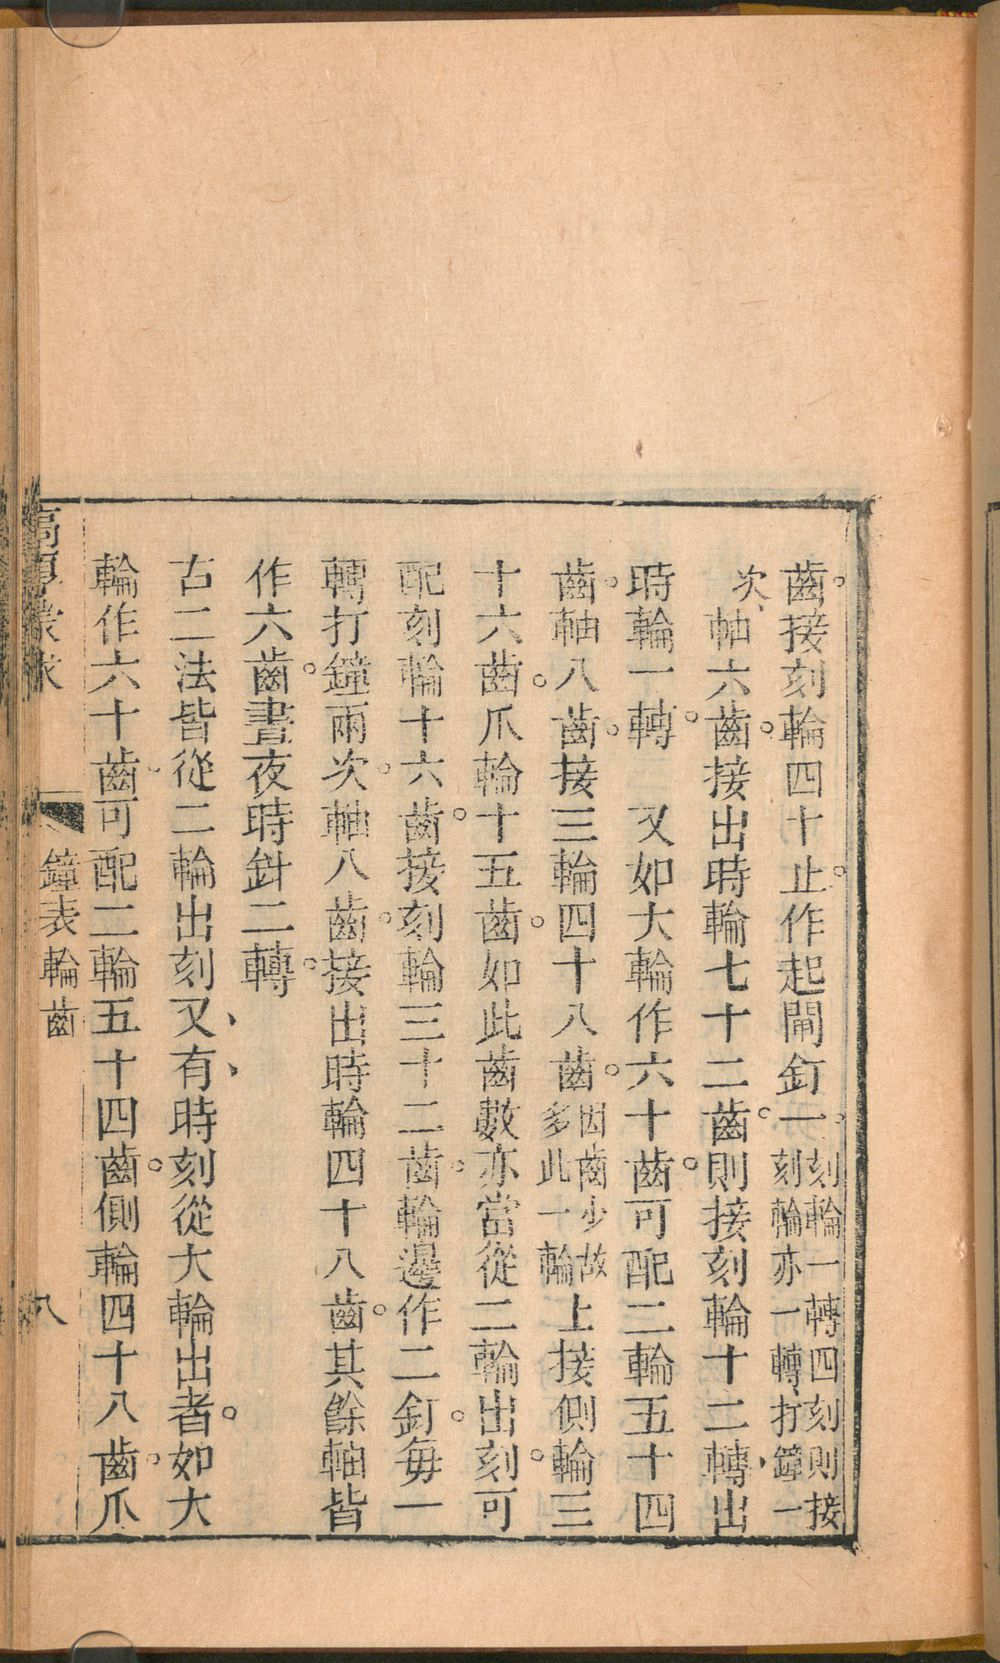 齒。接刻輪四十止。作起閘釘一。刻輪一轉四刻則接刻輪亦一轉打鐘一
次、軸六齒。接出時輪七十二齒。則接刻輪十二轉、出
時輪一轉。　又如大輪作六十齒。可配二輪五十四
齒。軸八齒。接三輪四十八齒。因齒少故多此一輪上接側輪三
十六齒。爪輪十五齒。如此齒數亦當從二輪出刻。可
配刻輪十六齒。接刻輪三十二齒。輪邊作二釘。每一
轉打鐘兩次。軸八齒。接出時輪四十八齒。其餘軸皆
作六齒。晝夜時針二轉。
古二法皆從二輪出刻又、有、時刻從大輪出者。如大
輪作六十齒、可配二輪五十四齒。側輪四十八齒。爪
蒙求　鐘表輪齒　八